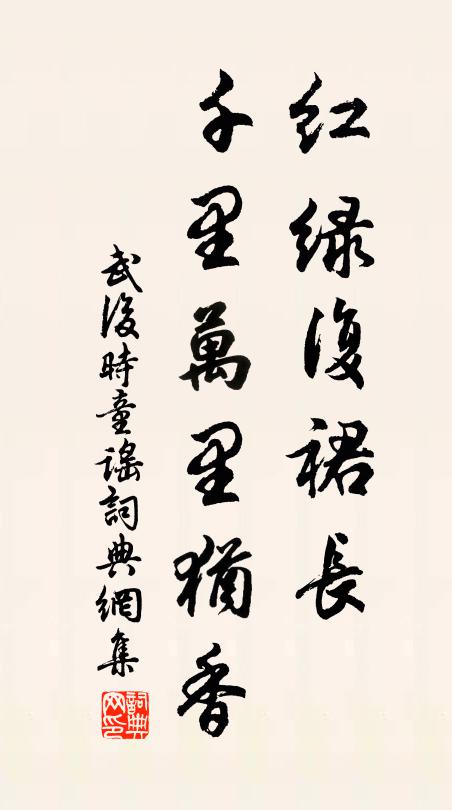 红绿復裙長
千里萬里猶香
武後時童謡詞典網集
詞典网印